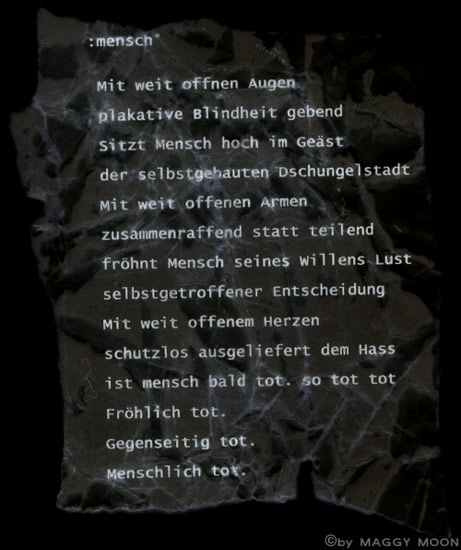 :mensch"
Mit weit offnen Augen
plakative Blindheit gebend
Sitzt Mensch hoch im Geäst
der selbstgebauten Dschungelstadt
Mit weit offenen Armen
zusammenraffend statt teilend
fröhnt Mensch seines Willens Lust
selbstgetroffener Entscheidung
Mit weit offenem Herzen
schutzlos ausgeliefert dem Hass
ist mensch bald tot. so tot tot
Fröhlich tot.
Gegenseitig tot.
Menschlich tot.
©by MAGGY MOON